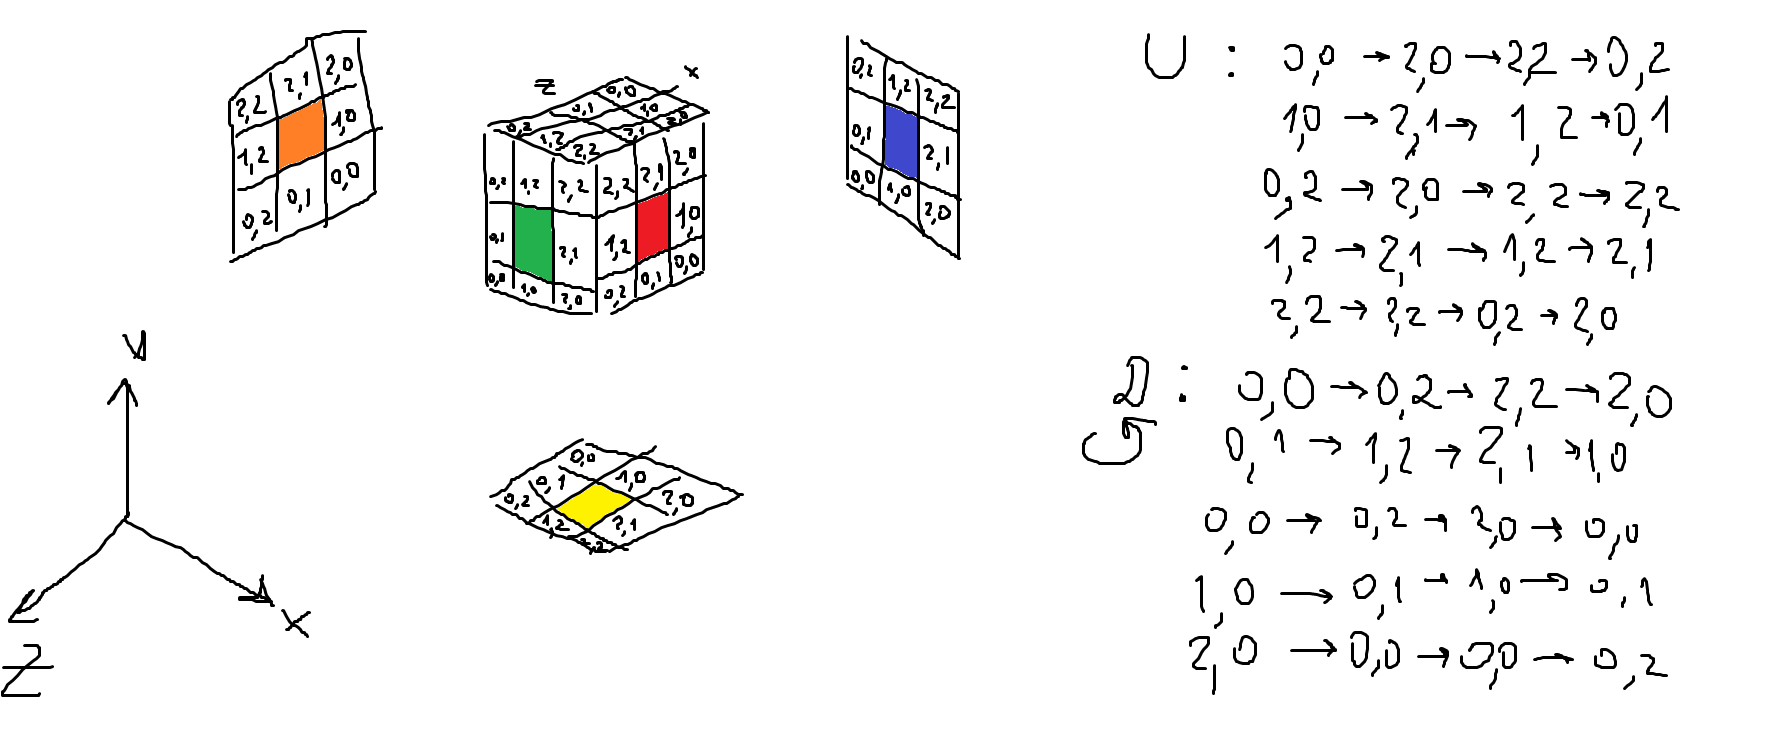 2,2 2,1 2,0
1,2 1,0
0,2 0,1 0,0
Z x
0,0
0,1 1,0
0,2 2,1 2,0
1,2
2,2
0,2 1,2 2,2
0,1 2,1
0,0 1,0 2,0
2,2 2,1 2,0
1,2 1,0
0,2 0,1 0,0
0,2 1,2 2,2
0,1 2,1
0,0 1,0 2,0
y
x
Z
0,0
0,1 1,0
0,2 2,0
1,2 2,1
2,2
U : 0,0 → 2,0 → 2,2 → 0,2
1,0 → 2,1 → 1,2 → 0,1
0,2 → 2,0 → 2,2 → 2,2
1,2 → 2,1 → 1,2 → 2,1
2,2 → 2,2 → 0,2 → 2,0
D : 0,0 → 0,2 → 2,2 → 2,0
0,1 → 1,2 → 2,1 → 1,0
0,0 → 0,2 → 2,0 → 0,0
1,0 → 0,1 → 1,0 → 0,1
2,0 → 0,0 → 0,0 → 0,2